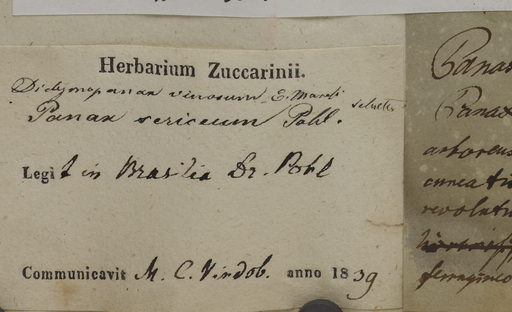 Herbarium Zuccarinii.
Didymopanax vinosum E. March
Panax sericeum Pohl.
Legit in Brasilia Dr. Pohl
Communicavit M. C. Vindob. anno 1839
Panax
arboreus
cuneatis
revolutis
ferrugineo